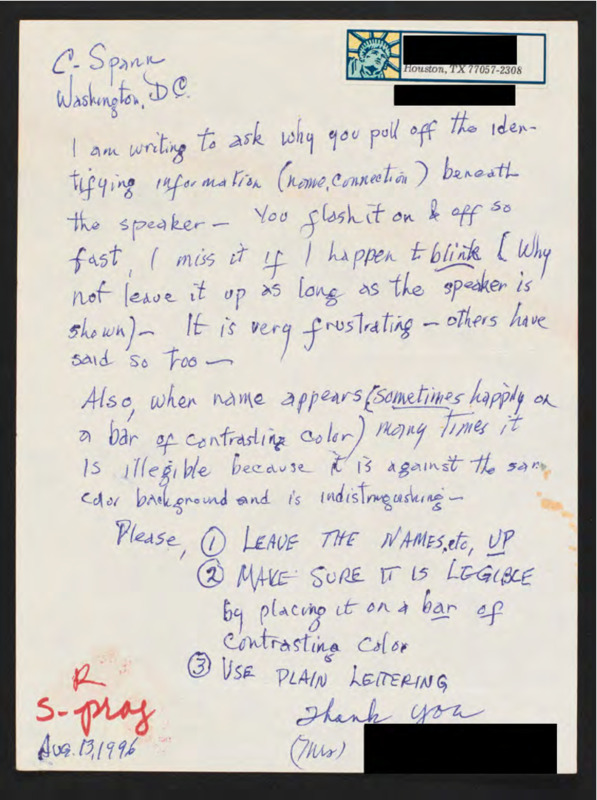 C-Spann
Washington, D.C.
Houston, TX 77057-2308
I am writing to ask why you pull off the iden-
tifying information (name, connection) beneath
the speaker — You flash it on & off so
fast, I miss it if I happen to blink [Why
not leave it up as long as the speaker is
shown) — It is very frustrating — others have
said so too —
Also, when name appears (sometimes happily on
a bar of contrasting color) many times it
is illegible because it is against the same
color background and is indistinguishing —
Please, ① LEAVE THE NAMES, etc, UP
② MAKE SURE IT IS LEGIBLE
by placing it on a bar of
contrasting color
③ USE PLAIN LETTERING
Thank you
(Mrs)
R
S-prog
AUG. 13, 1996